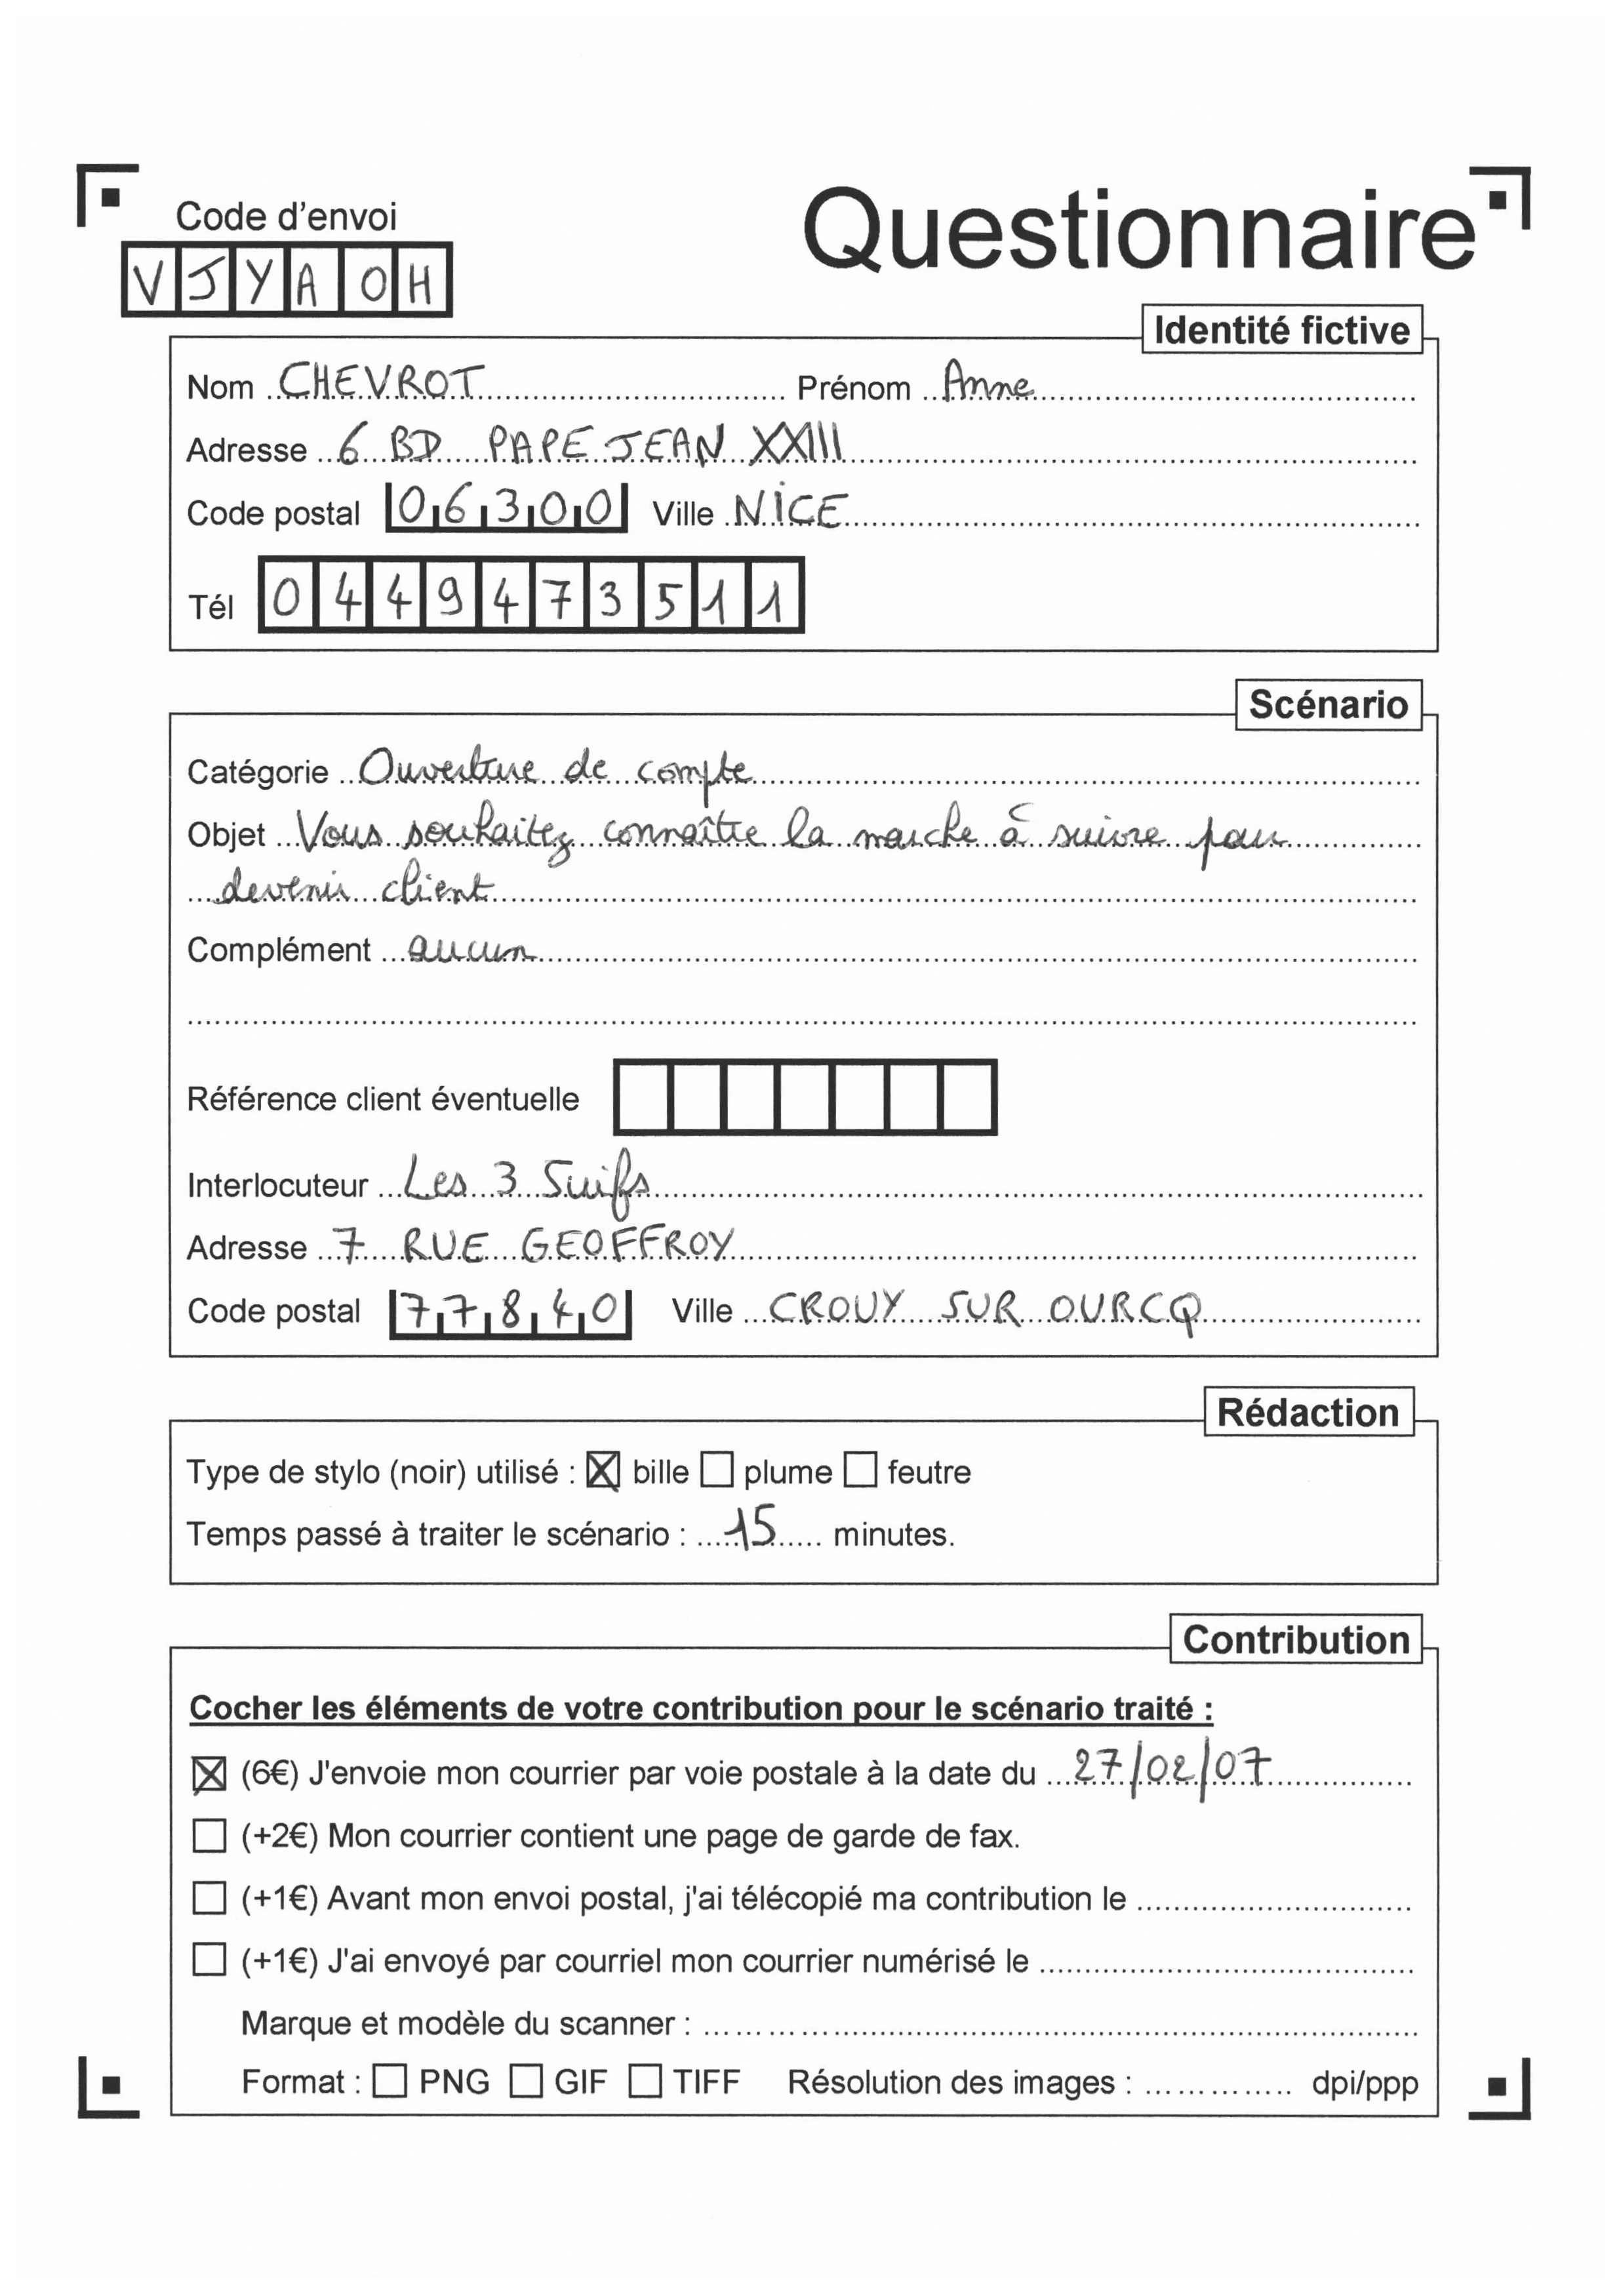 Code d'envoi
Questionnaire
VJYAOH
Identité fictive
Nom CHEVROT Prénom Anne
Adresse 6 BD PAPE JEAN XXIII
Code postal 06300 Ville NICE
Tél 0449473511
Scénario
Catégorie Ouverture de compte
Objet Vous souhaitez connaître la marche à suivre pour
devenir client
Complément aucun
Référence client éventuelle
Interlocuteur Les 3 Suifs
Adresse 7 RUE GEOFFROY
Code postal 77840 Ville CROUY SUR OURCQ
Rédaction
Type de stylo (noir) utilisé : ☒ bille ☐ plume ☐ feutre
Temps passé à traiter le scénario : 15 minutes.
Contribution
Cocher les éléments de votre contribution pour le scénario traité :
☒ (6€) J'envoie mon courrier par voie postale à la date du 27/02/07
☐ (+2€) Mon courrier contient une page de garde de fax.
☐ (+1€) Avant mon envoi postal, j'ai télécopié ma contribution le
☐ (+1€) J'ai envoyé par courriel mon courrier numérisé le
Marque et modèle du scanner :
Format : ☐ PNG ☐ GIF ☐ TIFF Résolution des images : dpi/ppp